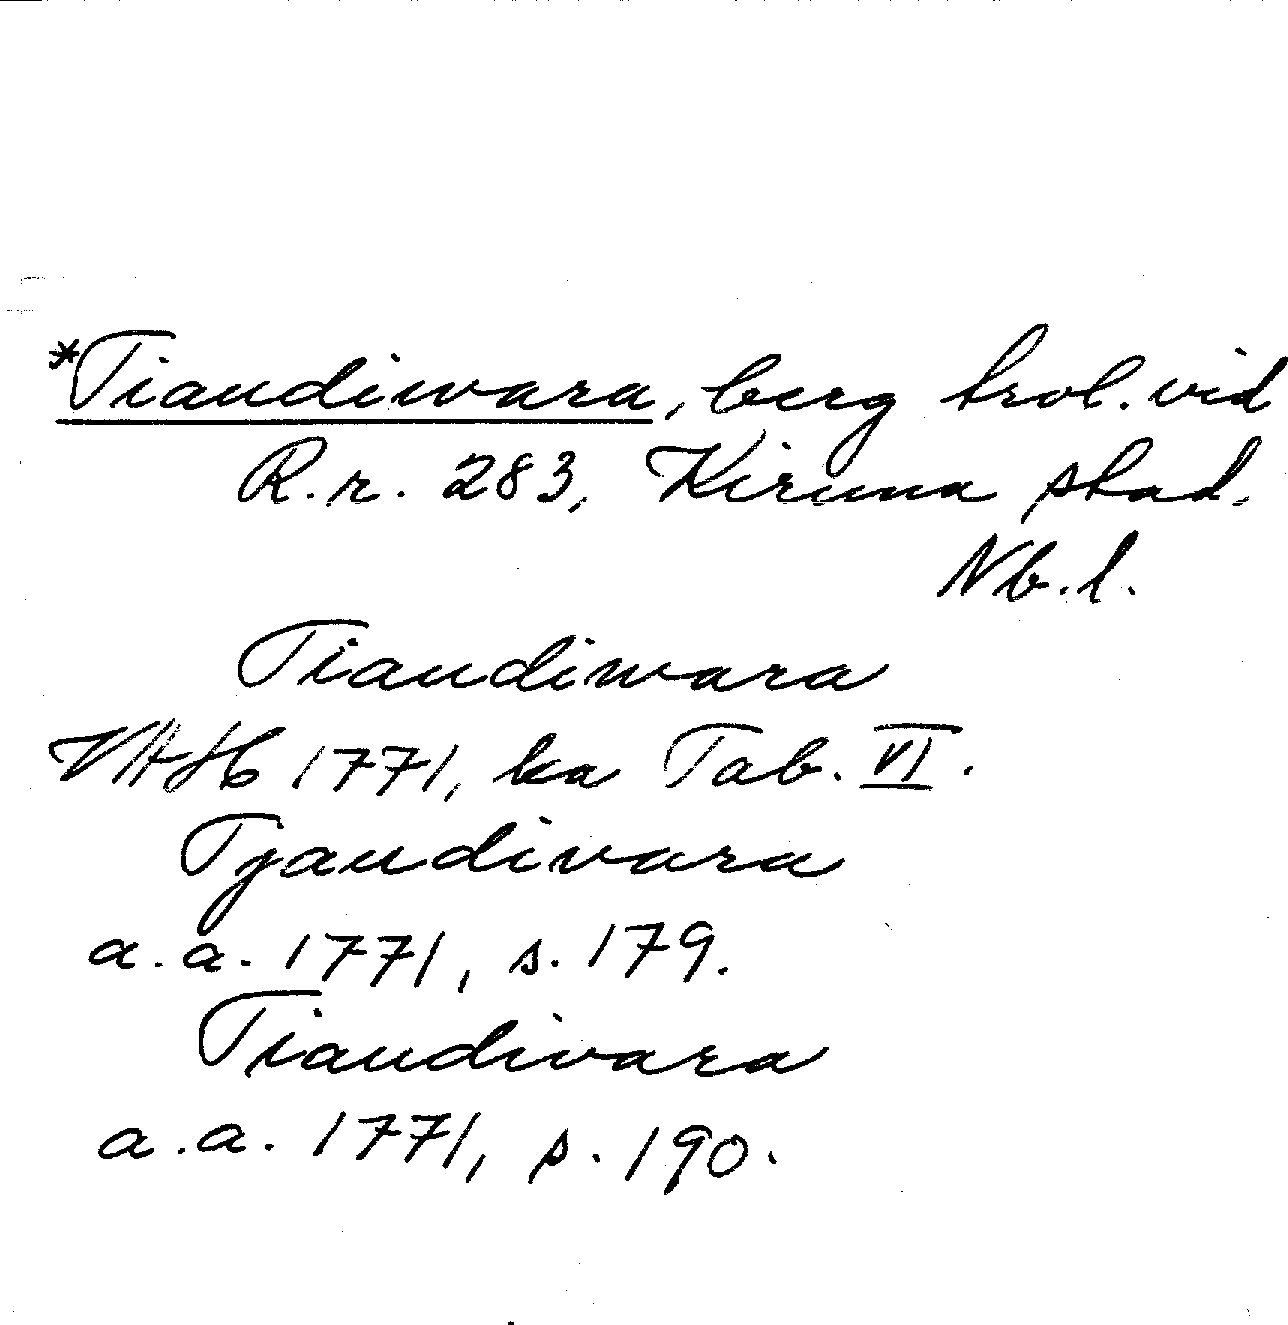 *Tiaudiwara, berg trol. vid
R.r. 283, Kiruna stad.
Nb.l.
Tiaudiwara
VAH 1771, ka Tab. VI.
Tjaudivara
a.a. 1771, s. 179.
Tiaudivara
a.a. 1771, s. 190.